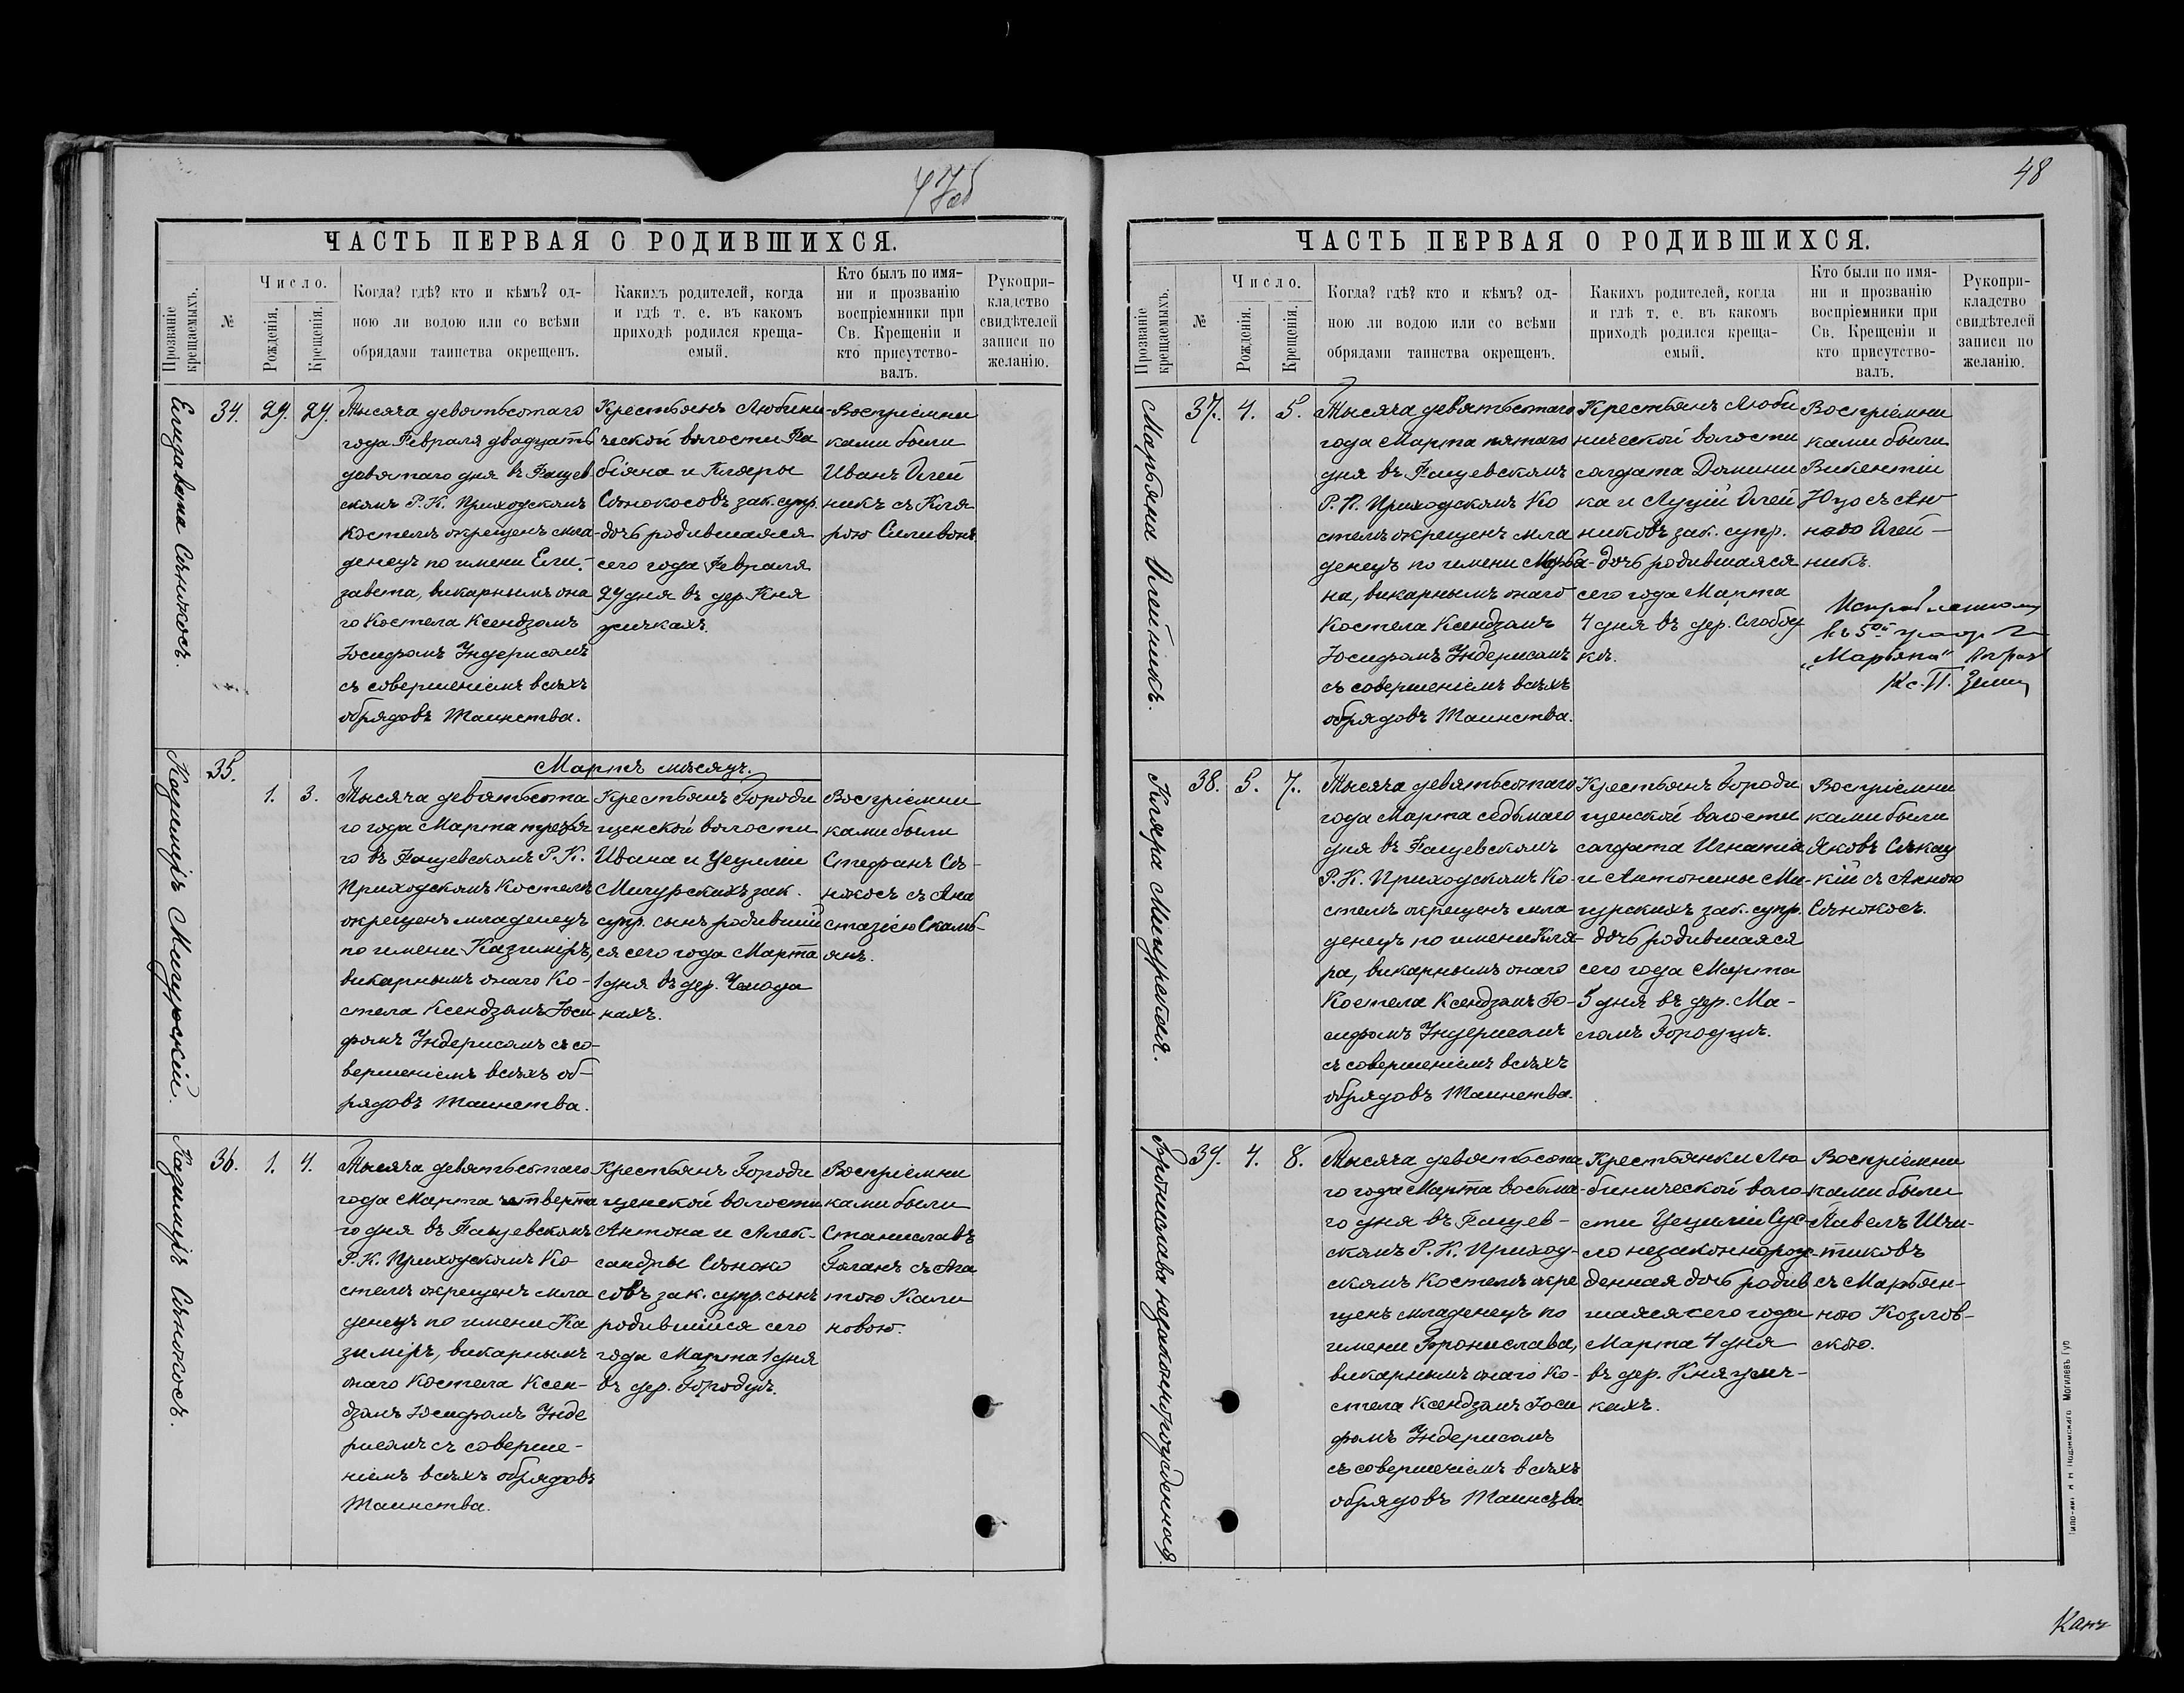 47об
ЧАСТЬ ПЕРВАЯ О РОДИВШИХСЯ.
Прозваніе крещаемыхъ.
№
Число.
Рожденія.
Крещенія.
Когда? гдѣ? кто и кѣмъ? од-
ною ли водою или со всѣми
обрядами таинства окрещенъ.
Какихъ родителей, когда
и гдѣ т. е. въ какомъ
приходѣ родился креща-
емый.
Кто былъ по имя-
ни и прозванію
воспріемники при
Св. Крещеніи и
кто присутство-
валъ.
Рукопри-
кладство
свидѣтелей
записи по
желанію.
Елизавета Сѣнокосъ.
34. 29. 29.
Тысяча девятьсотаго
года Февраля двадцать
девятаго дня въ Фащев
скомъ Р. К. Приходскомъ
Костелѣ окрещенъ мла
денецъ по имени Ели-
завета, викарнымъ она
го Костела Ксендзомъ
Іосифомъ Эндерисомъ
съ совершеніемъ всѣхъ
обрядовъ Таинства.
Крестьянъ Любини-
ческой волости Фа
біяна и Кляры
Сѣнокосовъ зак. супр.
дочь родившаяся
сего года Февраля
29 дня въ дер. Кня
жичкахъ.
Воспріемни
ками были
Иванъ Олей
никъ съ Кля
рою Силивонъ
Казимиръ Мигурскій.
35.
Мартъ мѣсяцъ.
1. 3.
Тысяча девятьсота
го года Марта третья
го въ Фащевскомъ Р. К.
Приходскомъ Костелѣ
окрещенъ младенецъ
по имени Казимиръ,
викарнымъ онаго Ко-
стела Ксендзомъ Іоси
фомъ Эндерисомъ съ со-
вершеніемъ всѣхъ об-
рядовъ Таинства.
Крестьянъ Городи
щенской волости
Ивана и Цециліи
Мигурскихъ зак.
супр. сынъ родивший
ся сего года Марта
1 дня въ дер. Чемода
нахъ.
Воспріемни
ками были
Стефанъ Сѣ-
нокосъ съ Ана
стазіею Скамь-
янъ.
Казимиръ Сѣнокосъ.
36. 1. 4.
Тысяча девятьсотаго
года Марта четверта
го дня въ Фащевскомъ
Р. К. Приходскомъ Ко
стелѣ окрещенъ мла
денецъ по имени Ка
зимиръ, викарнымъ
онаго Костела Ксен-
дзомъ Іосифомъ Энде
рисомъ съ соверше-
ніемъ всѣхъ обрядовъ
Таинства.
Крестьянъ Городи
щенской волости
Антона и Алек-
сандры Сѣноко
совъ зак. супр. сынъ
родившийся сего
года Марта 1 дня
въ дер. Городцѣ.
Воспріемни
ками были
Станиславъ
Гаганъ съ Ага
тою Кали
новою.
48
ЧАСТЬ ПЕРВАЯ О РОДИВШИХСЯ.
Прозваніе крещаемыхъ.
№
Число.
Рожденія.
Крещенія.
Когда? гдѣ? кто и кѣмъ? од-
ною ли водою или со всѣми
обрядами таинства окрещенъ.
Какихъ родителей, когда
и гдѣ т. е. въ какомъ
приходѣ родился креща-
емый.
Кто были по имя-
ни и прозванію
воспріемники при
Св. Крещеніи и
кто присутство-
валъ.
Рукопри-
кладство
свидѣтелей
записи по
желанію.
Марьяна Олейникъ.
37. 4. 5.
Тысяча девятьсотаго
года Марта пятаго
дня въ Фащевскомъ
Р. К. Приходскомъ Ко
стелѣ окрещенъ мла
денецъ по имени Марья
на, викарнымъ онаго
Костела Ксендзомъ
Іосифомъ Эндерисомъ
съ совершеніемъ всѣхъ
обрядовъ Таинства.
Крестьянъ Люби
нической волости
солдата Домини
ка и Луціи Олей
никовъ зак. супр.
дочь родившаяся
сего года Марта
4 дня въ дер. Слобод
кѣ.
Воспріемни
ками были
Викентій
Юцо съ Ан
ною Олей-
никъ.
Исправленному
въ 5ой
„Марьяна"
Кс. П.
Кляра Мигурская.
38. 5. 7.
Тысяча девятьсотаго
года Марта седьмаго
дня въ Фащевскомъ
Р. К. Приходскомъ Ко-
стелѣ окрещенъ мла
денецъ по имени Кля-
ра, викарнымъ онаго
Костела Ксендзомъ Іо-
сифомъ Эндерисомъ
съ совершеніемъ всѣхъ
обрядовъ Таинства.
Крестьянъ Городи
щенской волости
солдата Игнатія
и Антонины Ми-
гурскихъ зак. супр.
дочь родившаяся
сего года Марта
5 дня въ дер. Ма-
ломъ Городцѣ.
Воспріемни
ками были
Яковъ Сѣкац
кій съ Анною
Сѣнокосъ.
Бронислава незаконнорожденная.
39. 4. 8.
Тысяча девятьсота
го года Марта восьма-
го дня въ Фащев-
скомъ Р. К. Приход-
скомъ Костелѣ окре
щенъ младенецъ по
имени Бронислава,
викарнымъ онаго Ко-
стела Ксендзомъ Іоси
фомъ Эндерисомъ
съ совершеніемъ всѣхъ
обрядовъ Таинства.
Крестьянки Лю
бинической воло
сти Цециліи Сус-
ло незаконнорож-
денная дочь родив
шаяся сего года
Марта 4 дня
въ дер. Княжич-
кахъ.
Воспріемни
ками были
Павелъ Шчи-
тиковъ
съ Марьян-
ною Козлов-
скою.
Могилевъ Губ